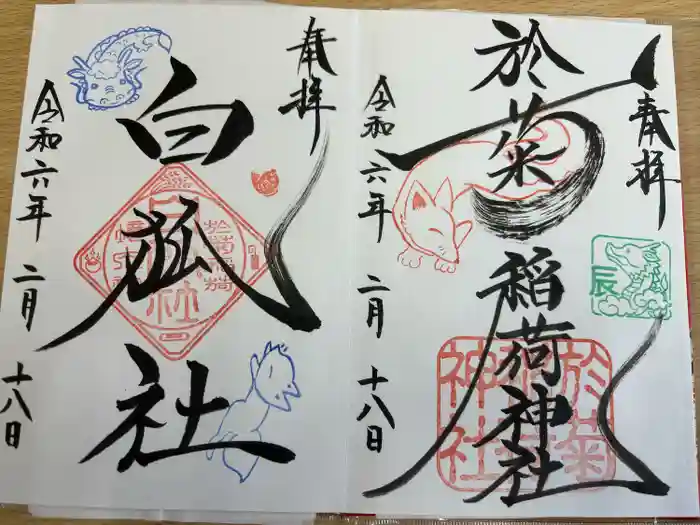 奉拝
於菊稲荷神社
辰
於菊稲荷神社
令和六年 二月 十八日
奉拝
白狐社
於菊稲荷
白狐社
令和六年 二月 十八日